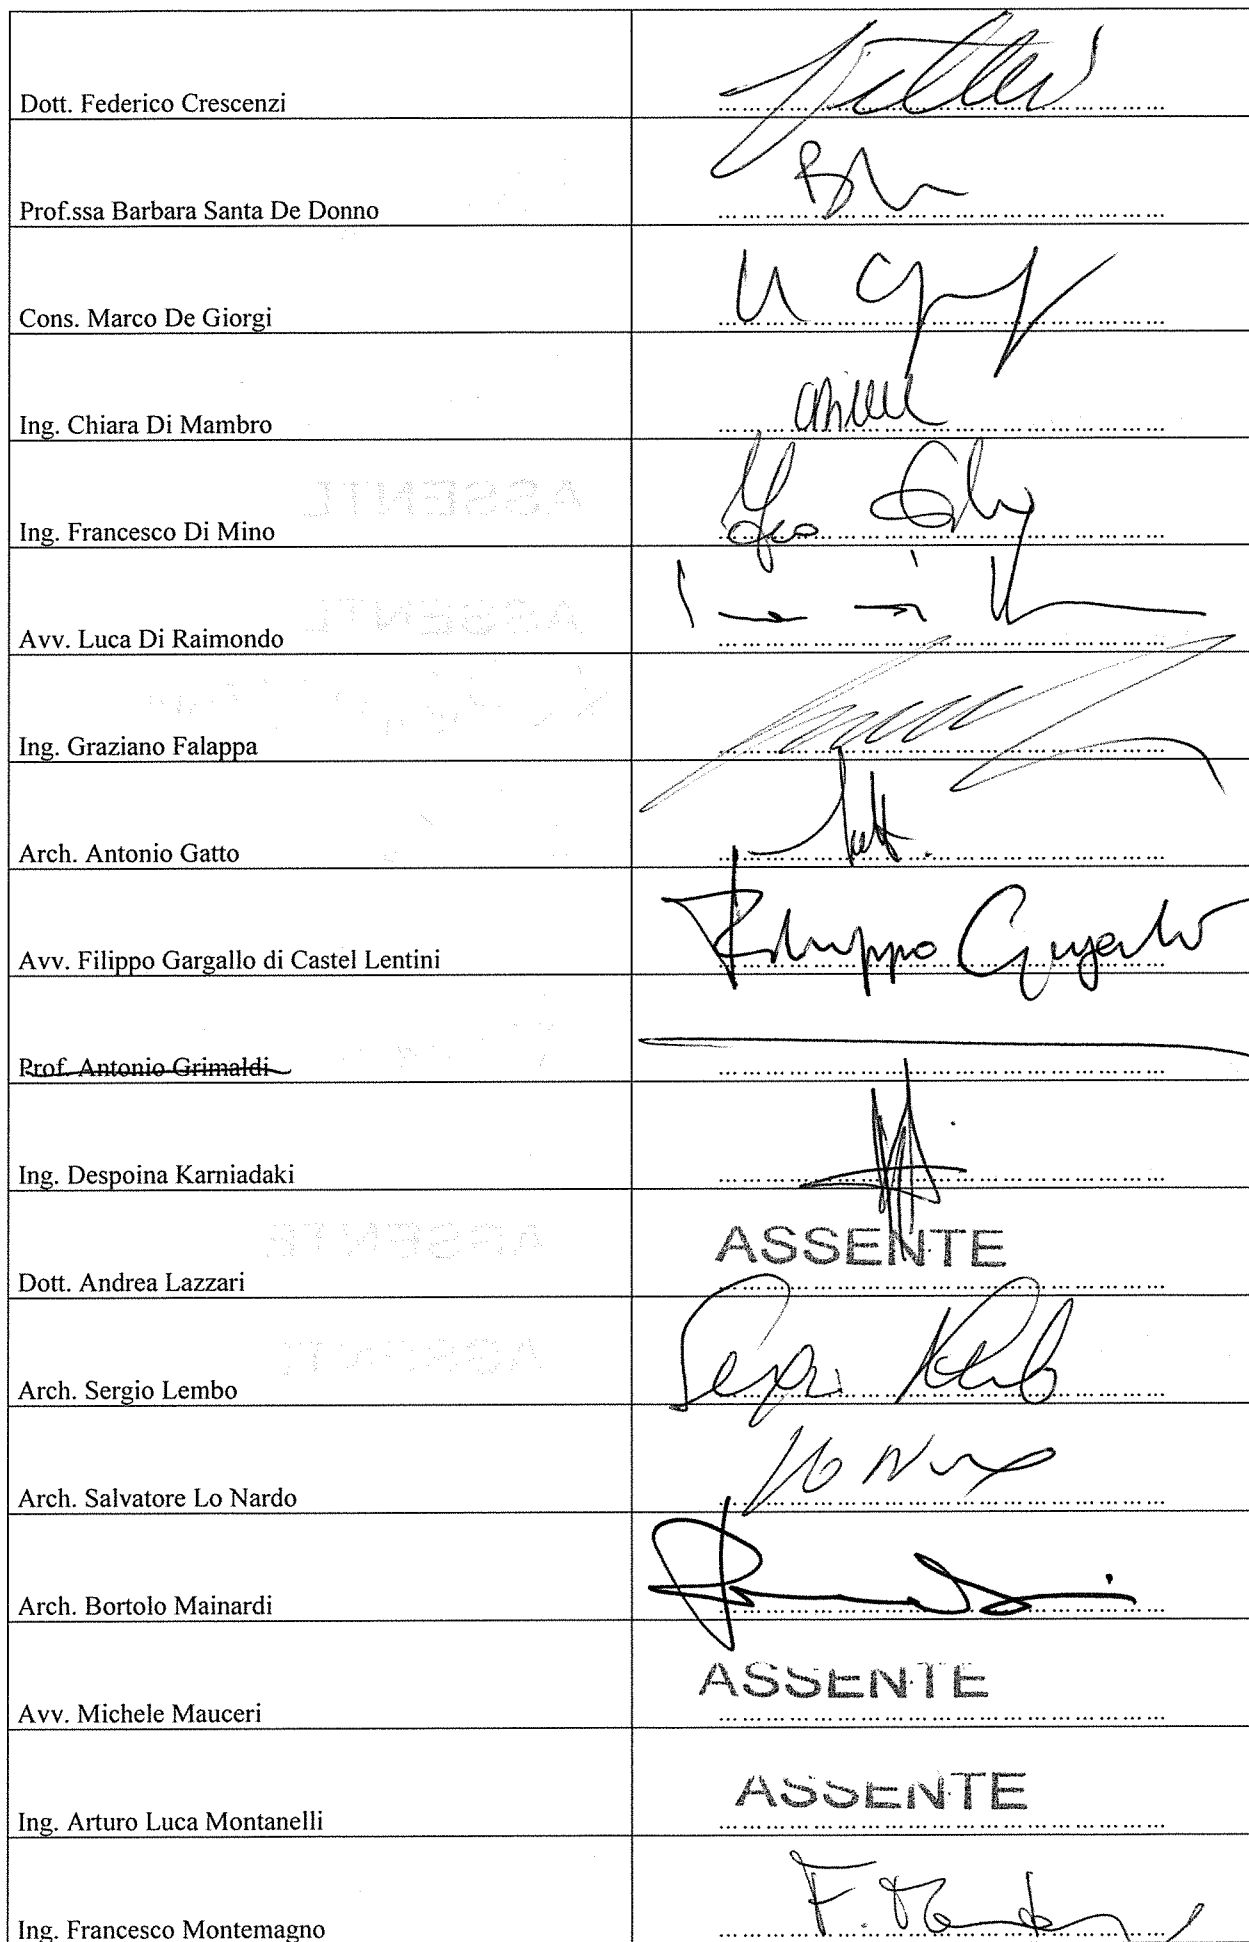 Dott. Federico Crescenzi
Prof.ssa Barbara Santa De Donno
Cons. Marco De Giorgi
Ing. Chiara Di Mambro
Ing. Francesco Di Mino
Avv. Luca Di Raimondo
Ing. Graziano Falappa
Arch. Antonio Gatto
Avv. Filippo Gargallo di Castel Lentini Filippo Gargallo
Prof. Antonio Grimaldi
Ing. Despoina Karniadaki
Dott. Andrea Lazzari ASSENTE
Arch. Sergio Lembo
Arch. Salvatore Lo Nardo
Arch. Bortolo Mainardi
Avv. Michele Mauceri ASSENTE
Ing. Arturo Luca Montanelli ASSENTE
Ing. Francesco Montemagno